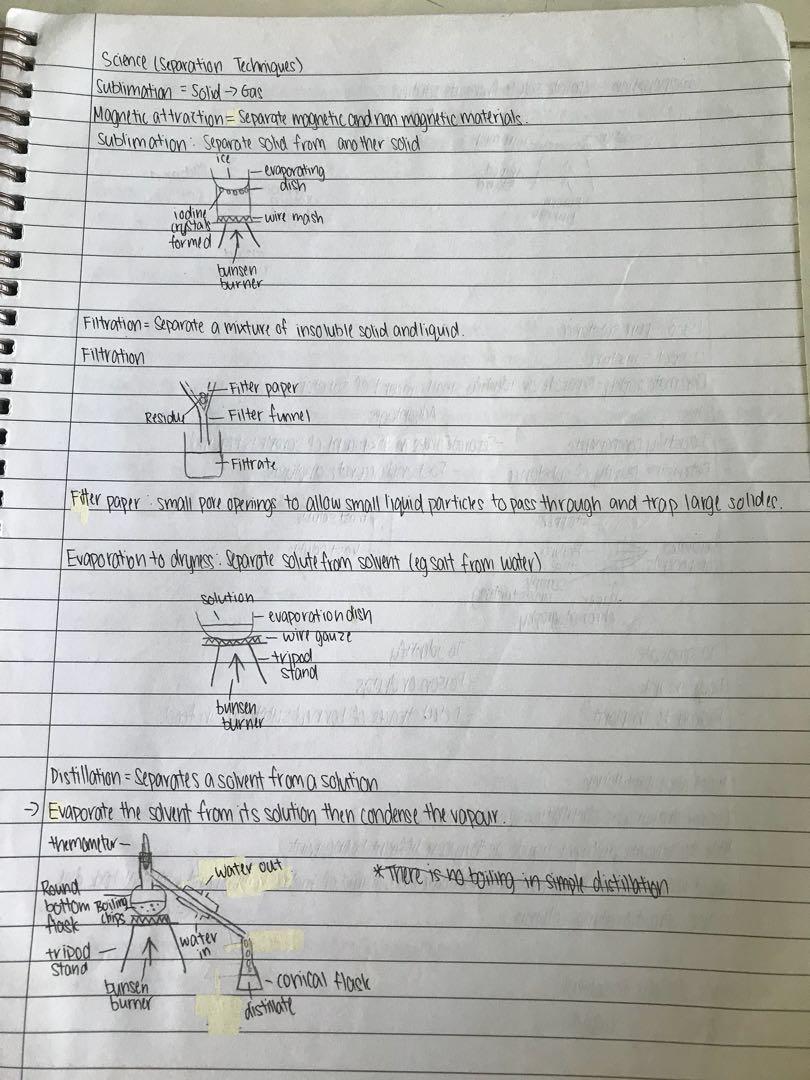 Science (Separation Techniques)
Sublimation = Solid → Gas
Magnetic attraction = Separate magnetic and non magnetic materials.
Sublimation: Separate solid from another solid
ice
evaporating
dish
iodine
crystals
formed
wire mash
bunsen
burner
Filtration = Separate a mixture of insoluble solid and liquid.
Filtration
Filter paper
Residue
Filter funnel
Filtrate
Filter paper: small pore openings to allow small liquid particles to pass through and trap large solides.
Evaporation to dryness: Separate solute from solvent (eg salt from water)
solution
evaporation dish
wire gauze
tripod
stand
bunsen
burner
Distillation = Separates a solvent from a solution
→ Evaporate the solvent from its solution then condense the vapour.
themometer
water out
*There is no boiling in simple distillation
Round
bottom
flask
Boiling
chips
water
in
tripod
stand
bunsen
burner
conical flask
distillate